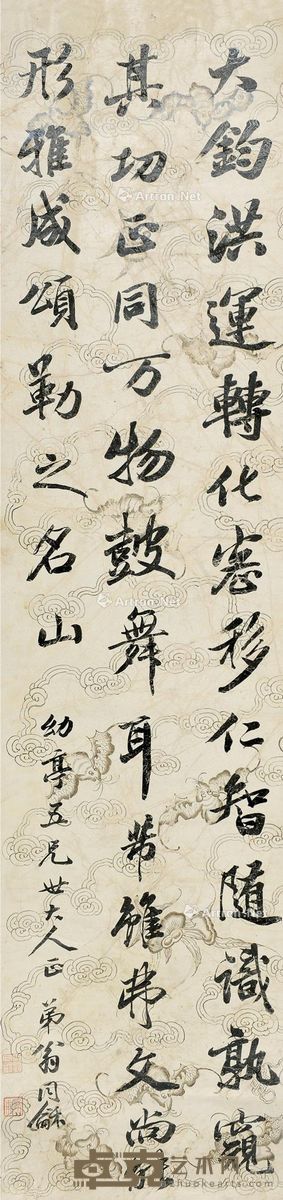 大鈞洪運轉化密移仁智隨識孰窺
其切正同万物鼓舞耳芾雖弗文尚能
形雅成頌勒之名山
幼亭五兄世大人正 弟翁同龢
Artron.Net
卓克艺术网